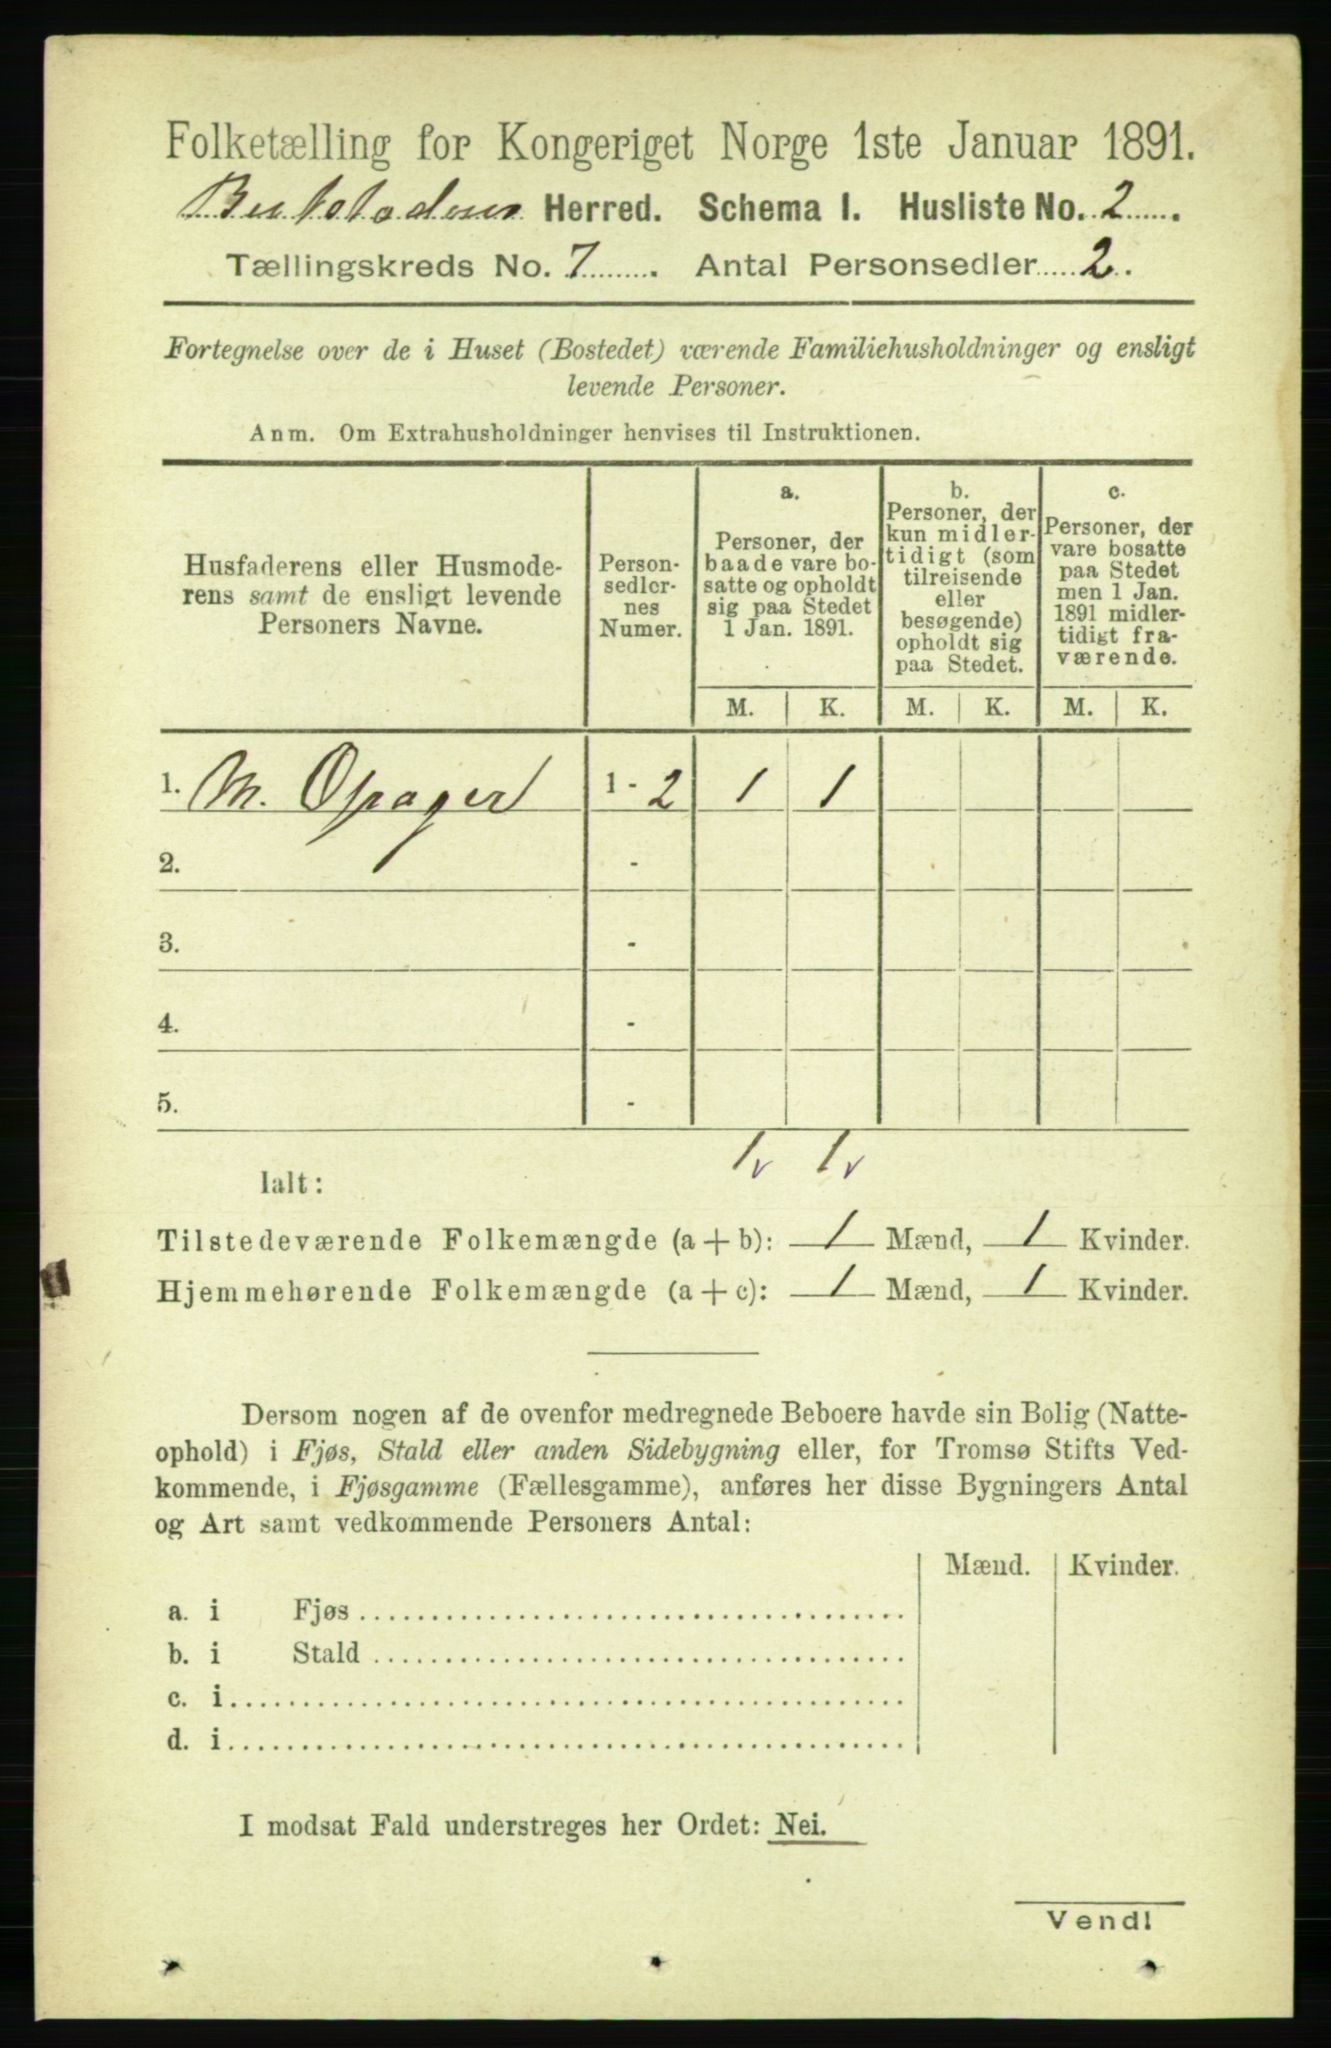 Folketælling for Kongeriget Norge 1ste Januar 1891.
Herred. Schema I. Husliste No. 2.
Tællingskreds No. 7. Antal Personsedler 2.
Fortegnelse over de i Huset (Bostedet) værende Familiehusholdninger og ensligt
levende Personer.
Anm. Om Extrahusholdninger henvises til Instruktionen.
Husfaderens eller Husmode-
rens samt de ensligt levende
Personers Navne.
Person-
sedler-
nes
Numer.
a.
Personer, der
baade vare bo-
satte og opholdt
sig paa Stedet
1 Jan. 1891.
b.
Personer, der
kun midler-
tidigt (som
tilreisende
eller
besøgende)
opholdt sig
paa Stedet.
c.
Personer, der
vare bosatte
paa Stedet
men 1 Jan.
1891 midler-
tidigt fra-
værende.
M. K. M. K. M. K.
1. M. Opager 1 - 2 1 1
2. -
3. -
4. -
5. -
1 1
Ialt:
Tilstedeværende Folkemængde (a + b): 1 Mænd, 1 Kvinder.
Hjemmehørende Folkemængde (a + c): 1 Mænd, 1 Kvinder.
Dersom nogen af de ovenfor medregnede Beboere havde sin Bolig (Natte-
ophold) i Fjøs, Stald eller anden Sidebygning eller, for Tromsø Stifts Ved-
kommende, i Fjøsgamme (Fællesgamme), anføres her disse Bygningers Antal
og Art samt vedkommende Personers Antal:
Mænd. Kvinder.
a. i Fjøs
b. i Stald
c. i
d. i
I modsat Fald understreges her Ordet: Nei.
Vend!